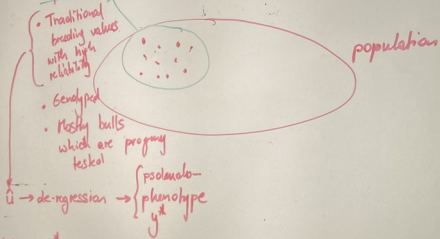 • Traditional
breeding values
with high
reliability
population
• Genotyped
• Mostly bulls
which are progeny
tested
û → de-regression → pseudo-
phenotype
y*